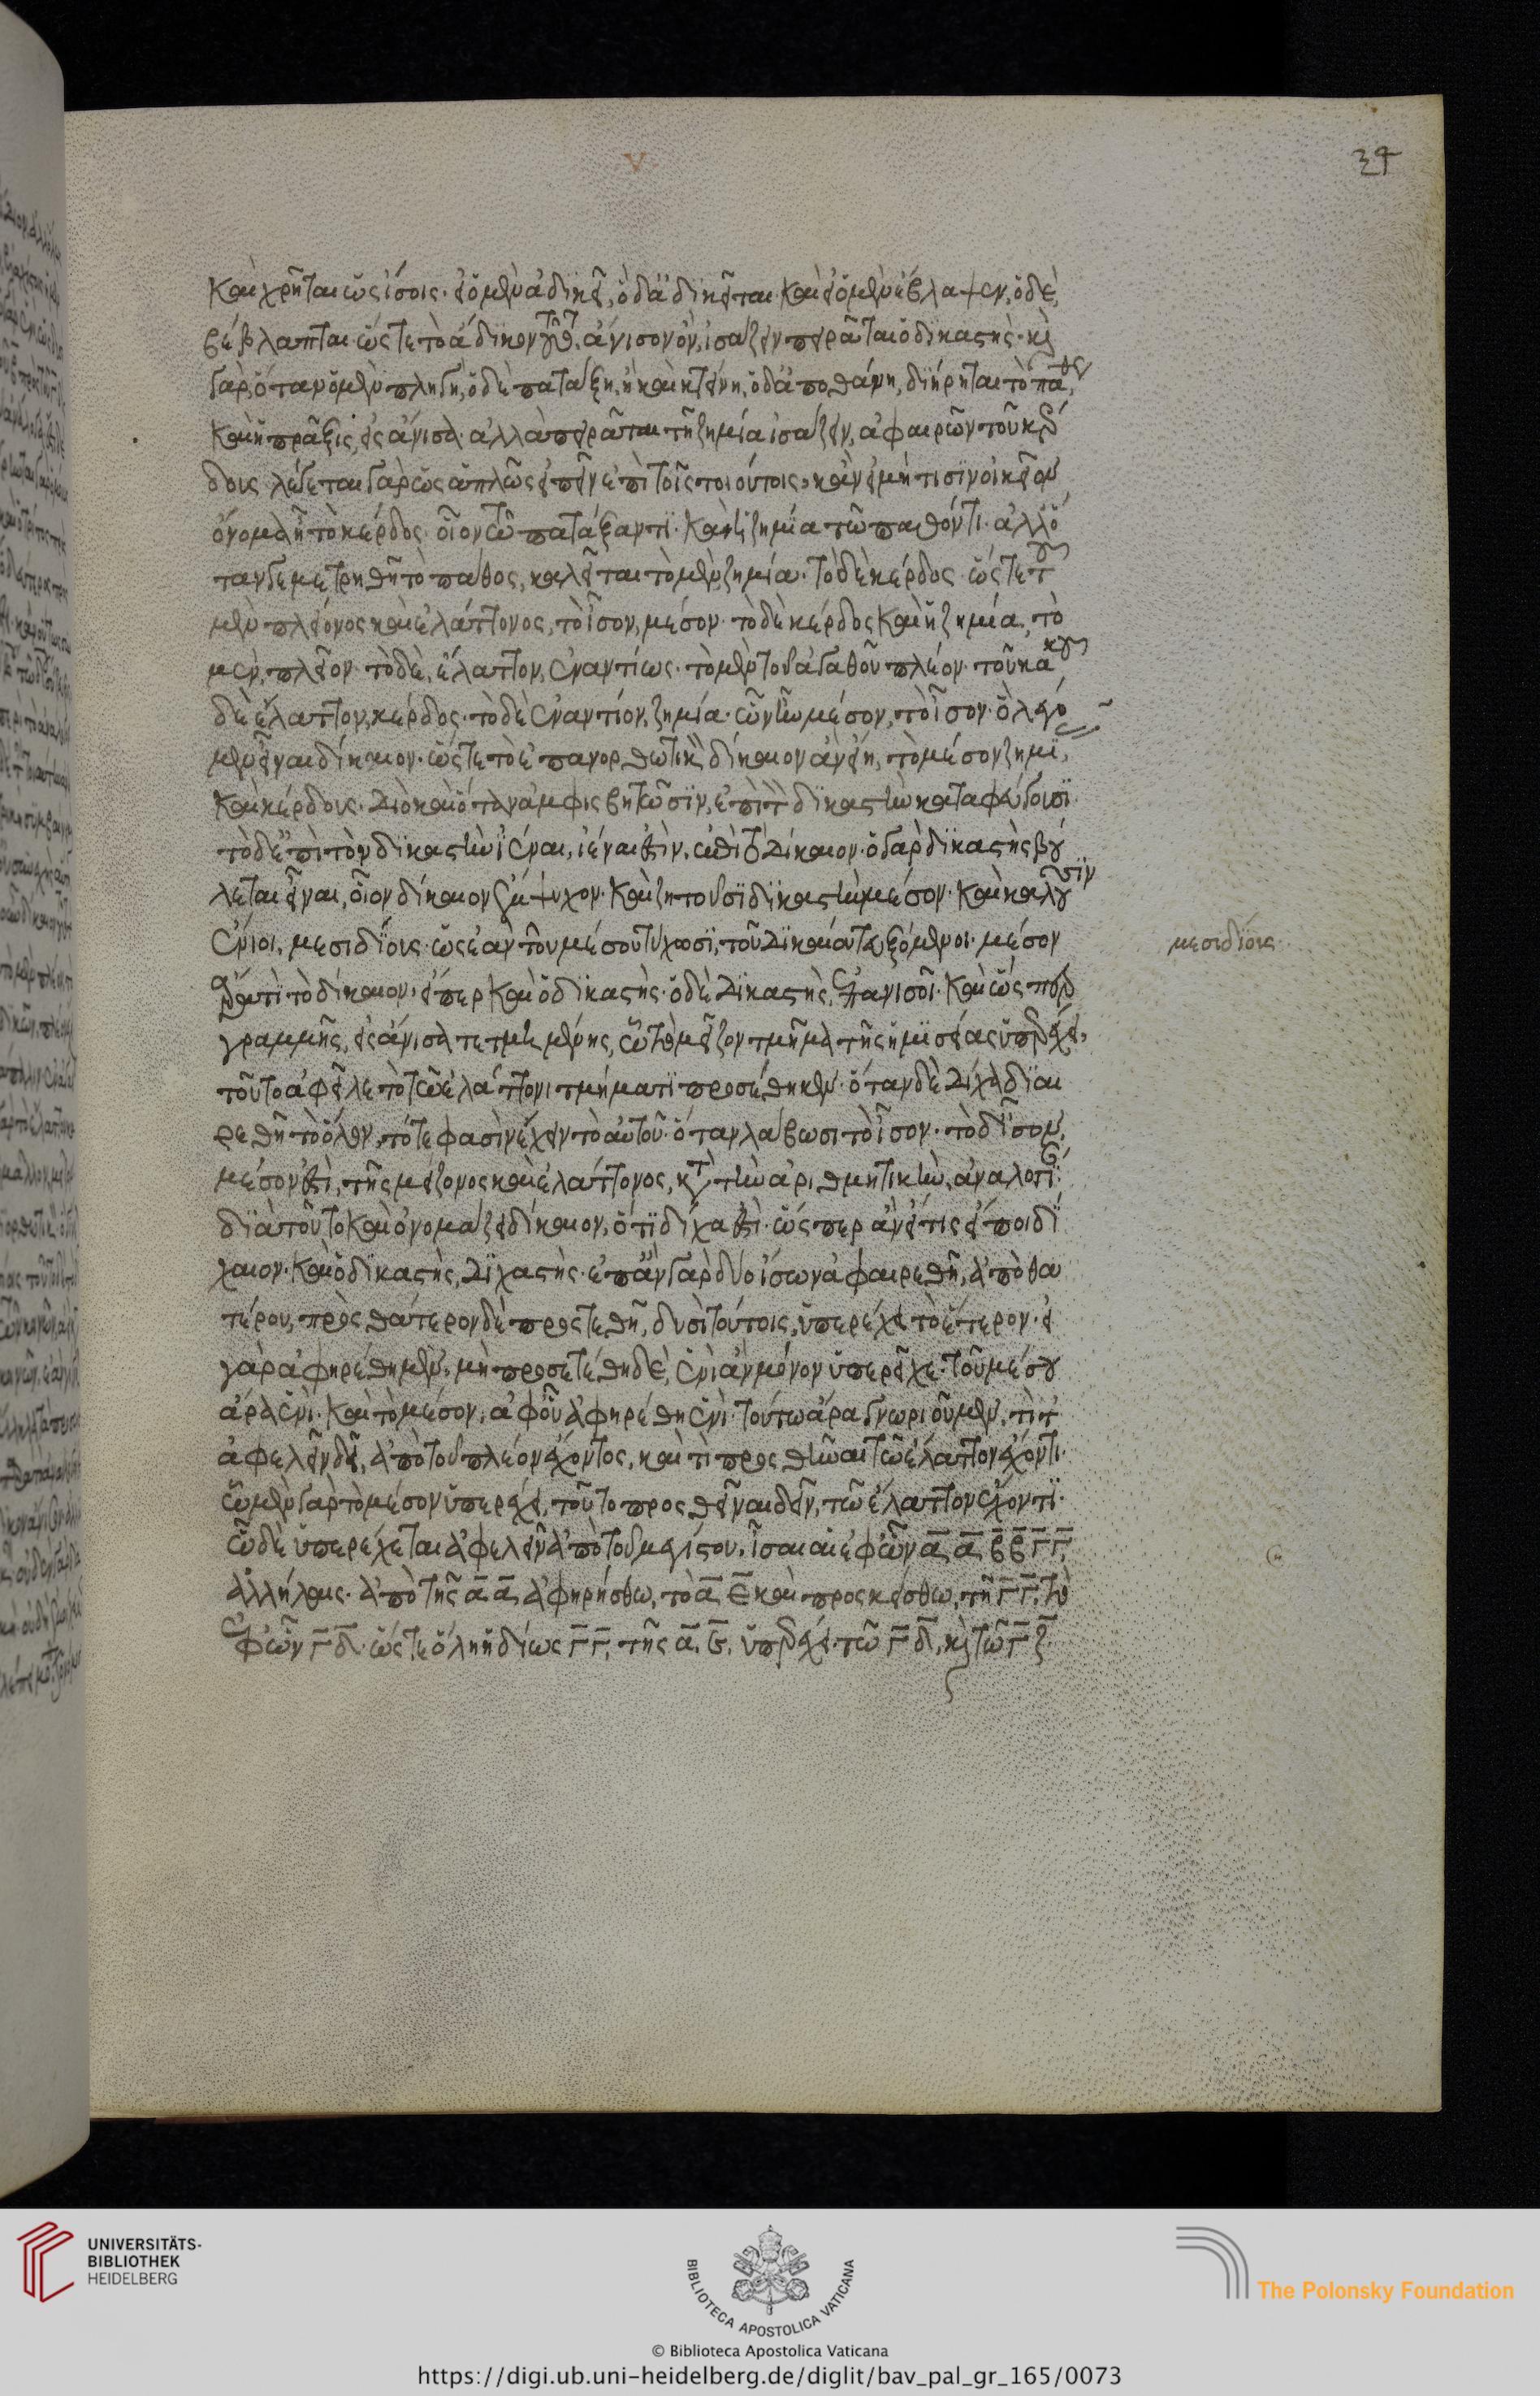 V
34
καὶ χρῆται ὡς ἴσοις· εἰ ὁ μὲν ἀδικεῖ, ὁ δ' ἀδικεῖται· καὶ εἰ ὁ μὲν ἔβλαψεν, ὁ δὲ,
βέβλαπται· ὥστε τὸ ἄδικον τοῦτο, ἄνισον ὂν, ἰσάζειν πειρᾶται ὁ δικαστής· κὶ
γὰρ, ὅταν ὁ μὲν πληγῆ, ὁ δὲ πατάξη, ἢ καὶ κτείνη, ὁ δ' ἀποθάνη, διήρηται τὸ πάθος,
καὶ ἡ πρᾶξις, εἰς ἄνισα· ἀλλὰ πειρᾶται τῆ ζημία ἰσάζειν, ἀφαιρῶν τοῦ κέρ
δους λέγεται γὰρ ὡς ἁπλῶς εἰπεῖν ἐπὶ τοῖς τοιούτοις, κἂν εἰ μή τισιν οἰκεῖον
ὄνομα εἴη τὸ κέρδος· οἷον τῶ πατάξαντι· καὶ ἡ ζημία τῶ παθόντι· ἀλλ' ὅ
ταν γε μετρηθῆ τὸ πάθος, καλεῖται τὸ μὲν ζημία· τὸ δὲ κέρδος· ὥστε τοῦ
μὲν πλείονος καὶ ἐλάττονος, τὸ ἴσον, μέσον· τὸ δὲ κέρδος καὶ ἡ ζημία, τὸ
μὲν, πλεῖον· τὸ δὲ, ἔλαττον, ἐναντίως· τὸ μὲν τοῦ ἀγαθοῦ πλέον· τοῦ κακοῦ
δὲ ἔλαττον, κέρδος· τὸ δὲ ἐναντίον, ζημία· ὧν ἦν μέσον, τὸ ἴσον· ὃ λέγο
μεν εἶναι δίκαιον· ὥστε τὸ ἐπανορθωτικὸν δίκαιον ἂν εἴη, τὸ μέσον ζημί,
καὶ κέρδους· διὸ καὶ ὅταν ἀμφισβητῶσιν, ἐπὶ τὸν δικαστὴν καταφεύγουσι·
τὸ δ' ἐπὶ τὸν δικαστὴν ἰέναι, ἰέναι ἐστὶν, ἐπὶ τὸ δίκαιον· ὁ γὰρ δικαστὴς βού
λεται εἶναι, οἷον δίκαιον ἔμψυχον· καὶ ζητοῦσι δικαστὴν μέσον· καὶ καλοῦσιν
ἔνιοι, μεσιδίους· ὡς ἐὰν τοῦ μέσου τύχωσι, τοῦ δικαίου τευξόμενοι· μέσον
ἄρα τι τὸ δίκαιον, εἴπερ καὶ ὁ δικαστής· ὁ δὲ δικαστὴς, ἐπανισοῖ· καὶ ὥσπερ
γραμμῆς, εἰς ἄνισα τετμημένης, ὧ τὸ μεῖζον τμῆμα τῆς ἡμισείας ὑπερέχει,
τοῦτο ἀφεῖλε τὸ τῶ ἐλάττονι τμήματι προσέθηκεν· ὅταν δὲ δίχα διαι
ρεθῆ τὸ ὅλον, τότε φασὶν ἔχειν τὸ αὑτοῦ· ὅταν λάβωσι τὸ ἴσον· τὸ δ' ἴσον,
μέσον ἐστὶ, τῆς μείζονος καὶ ἐλάττονος, κατὰ τὴν ἀριθμητικὴν, ἀναλογί·
διὰ τοῦτο καὶ ὀνομάζει δίκαιον, ὅτι δίχα ἐστί· ὥσπερ ἂν εἴ τις εἴποι δί
χαιον· καὶ ὁ δικαστὴς, διχαστής· ἐπὰν γὰρ δύο ἴσων ἀφαιρεθῆ, ἀπὸ θα
τέρου, πρὸς θάτερον δὲ προστεθῆ, δυσὶ τούτοις, ὑπερέχει τὸ ἕτερον· εἰ
γὰρ ἀφηρέθη μὲν, μὴ προσετέθη δὲ, ἑνὶ ἂν μόνον ὑπερεῖχε· τοῦ μέσου
ἄρα ἑνί· καὶ τὸ μέσον, ἀφ' οὗ ἀφηρέθη ἑνί· τούτω ἄρα γνωριοῦμεν, τί τε
ἀφελεῖν δεῖ, ἀπὸ τοῦ πλέον ἔχοντος, καὶ τί προσθεῖναι τῶ ἔλαττον ἔχοντι·
ὧ μὲν γὰρ τὸ μέσον ὑπερέχει, τοῦτο προσθεῖναι δεῖν, τῶ ἔλαττον ἔχοντι·
ὧ δὲ ὑπερέχεται ἀφελεῖν ἀπὸ τοῦ μεγίστου· ἴσαι αἱ ἐφ' ὧν α̅ α̅ β̅ β̅ Γ̅ Γ̅,
ἀλλήλαις· ἀπὸ τῆς α̅ α̅ ἀφηρήσθω, τὸ α̅ ε̅ καὶ προσκείσθω, τῆ Γ̅ Γ̅, τὸ
ἐφ' ὧν Γ̅ δ̅· ὥστε ὅλη ἡ δίως Γ̅ Γ̅, τῆς α̅, ε̅, ὑπερέχει· τῶ Γ̅ δ̅, κὶ τῶ Γ̅ ζ̅·
μεσιδίους
UNIVERSITÄTS-
BIBLIOTHEK
HEIDELBERG
BIBLIOTECA APOSTOLICA VATICANA
The Polonsky Foundation
© Biblioteca Apostolica Vaticana
https://digi.ub.uni-heidelberg.de/diglit/bav_pal_gr_165/0073